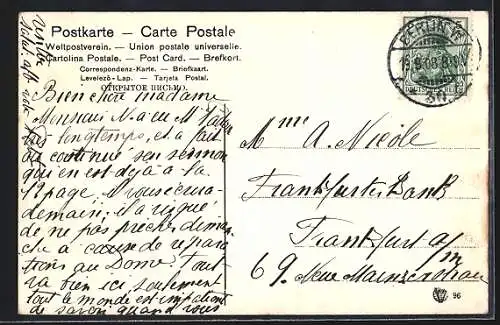 Postkarte — Carte Postale
Weltpostverein. — Union postale universelle.
Cartolina Postale. — Post Card. — Brefkort.
Correspondenz-Karte. — Briefkaart.
Levelező-Lap. — Tarjeta Postal.
ОТКРЫТОЕ ПИСЬМО.
BERLIN W
16.9.08.8
30
Bien chère madame
Monsieur N. a
longtemps, et a fait
ou continué son sermon
qui en est déjà à la
12 page. Il vous
demain; il a risqué
de ne pas prêcher diman-
che à cause de répara-
tions au Dome. Tout
va bien ici, seulement
tout le monde est impatient
de savoir quand vous
Mme A. Nicole
Frankfurter Bank
Frankfurt a/m
69. Neue Mainzerstrasse
96